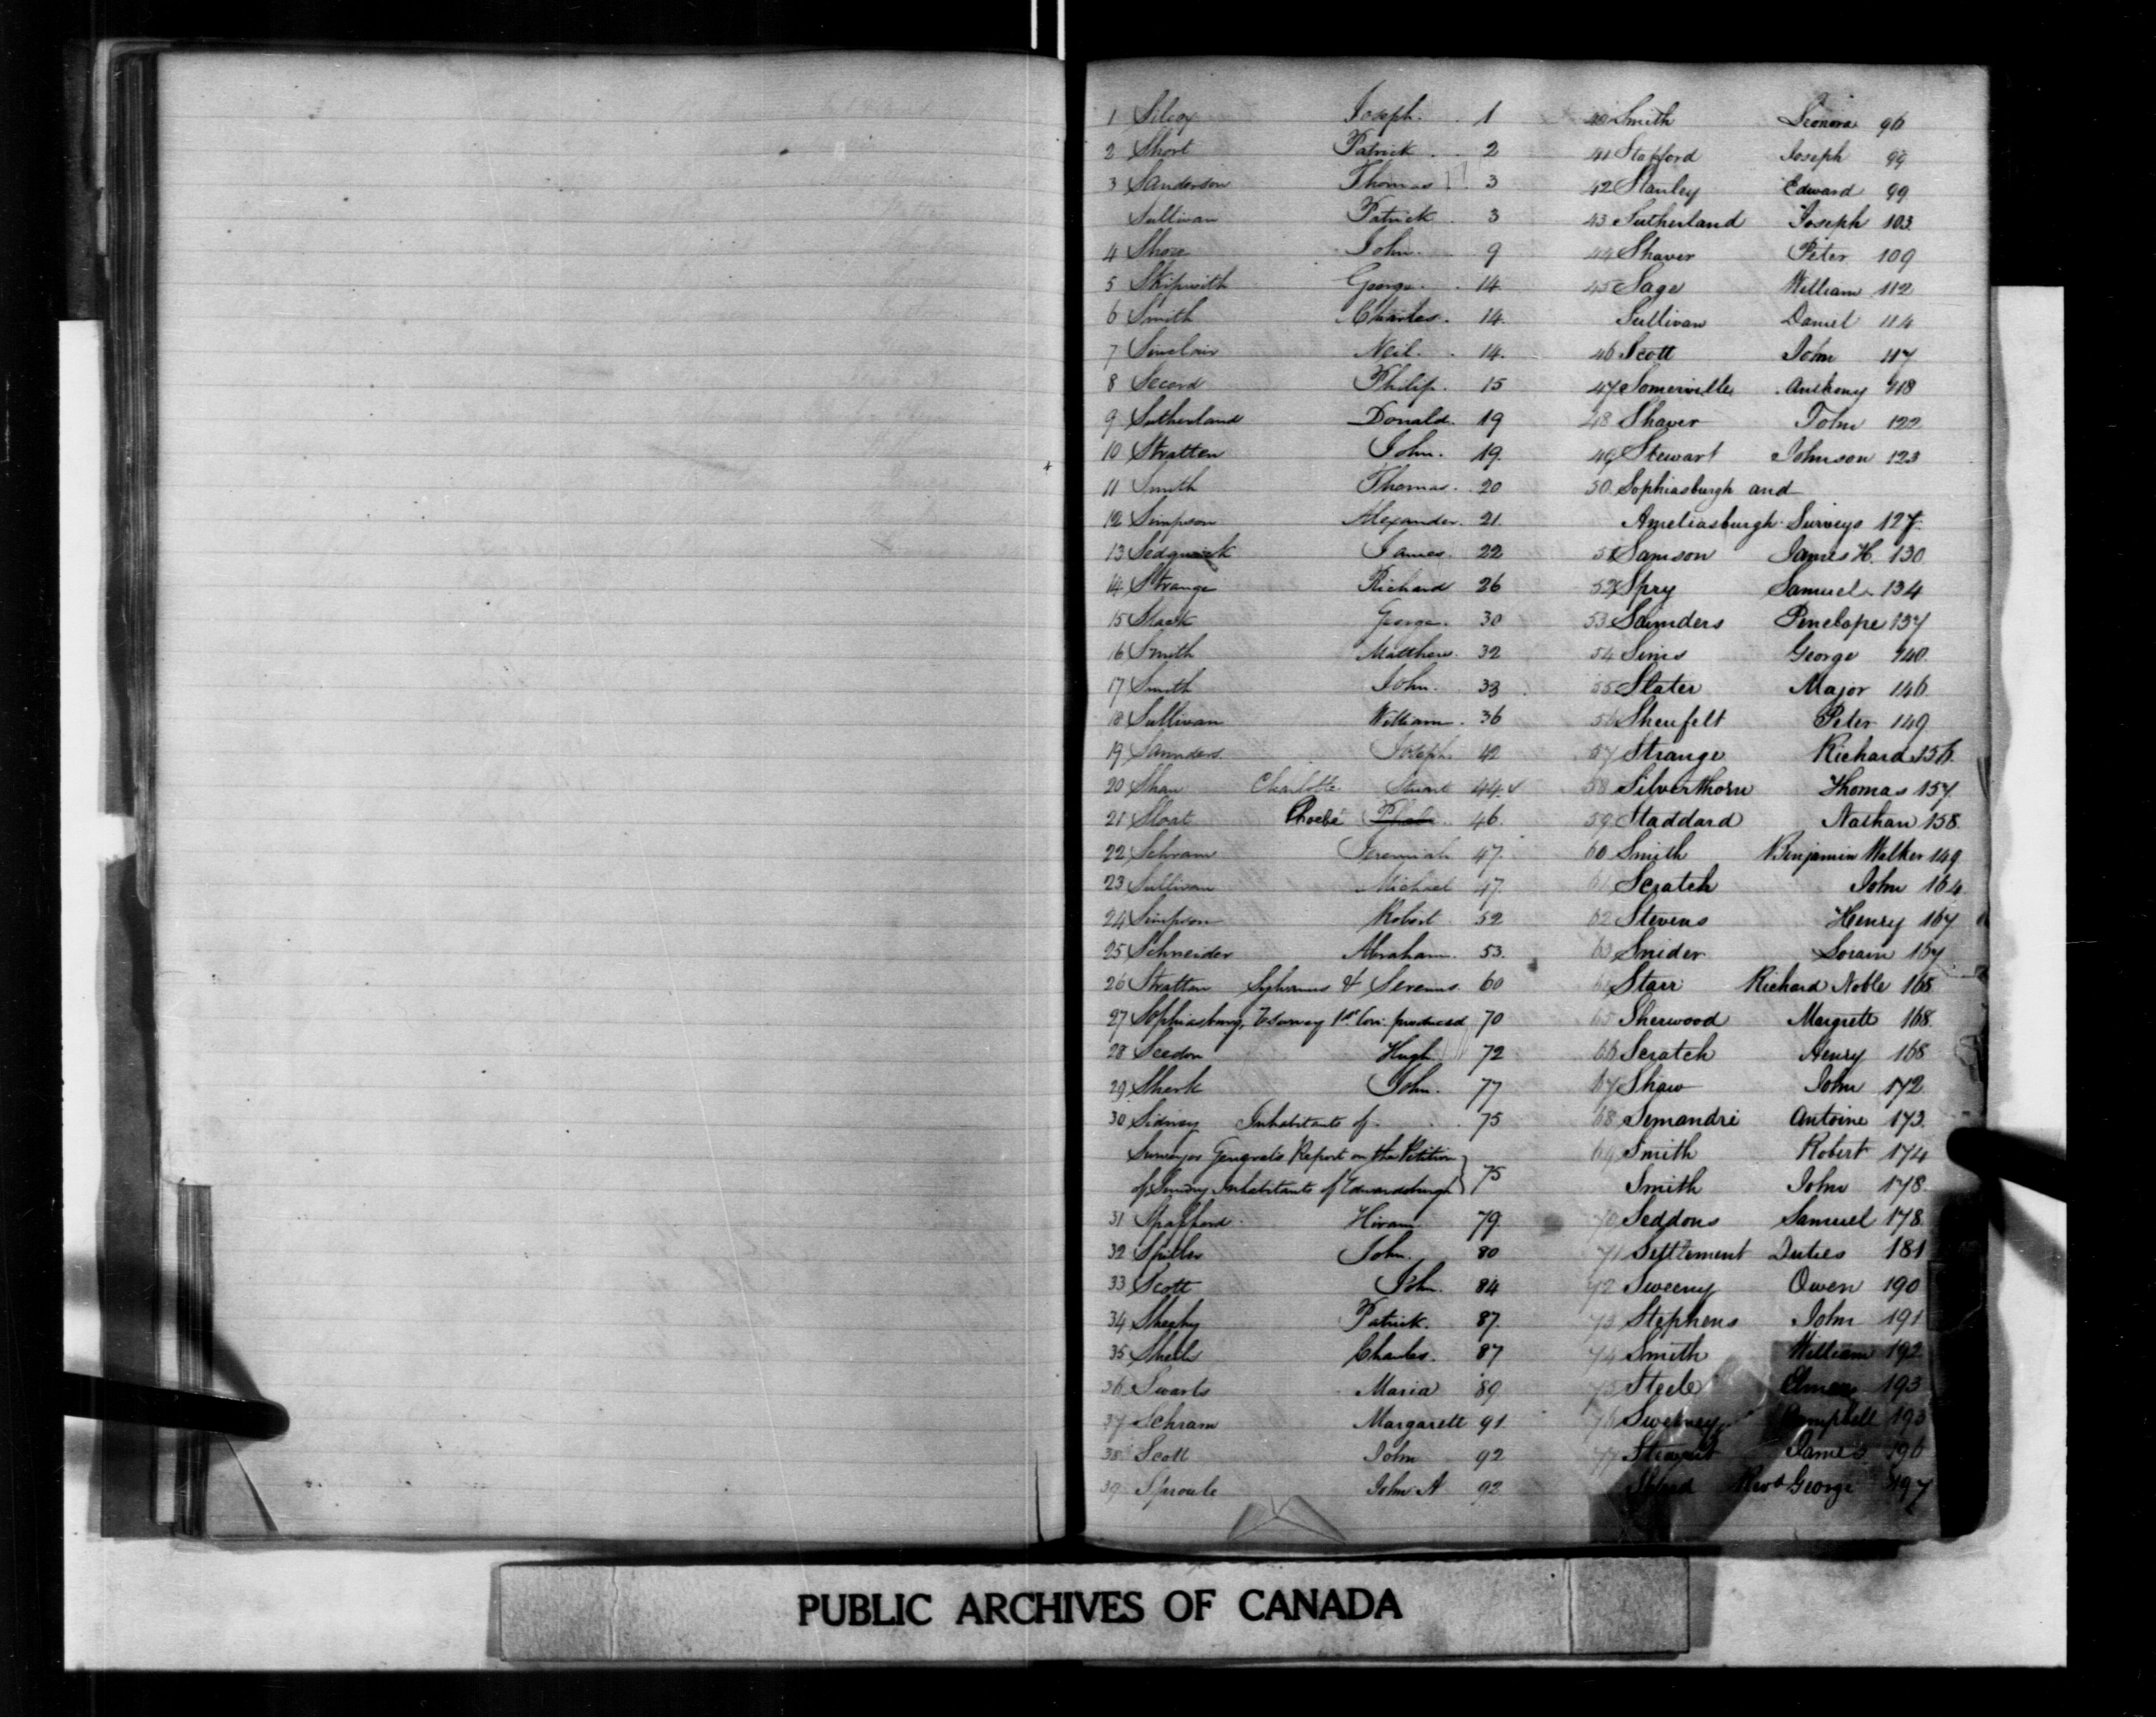 1 Silcox Joseph. 1
2 Short Patrick 2
3 Sanderson Thomas 3
Sullivan Patrick 3
4 Shore John. 9
5 Skipwith George. 14
6 Smith Charles. 14.
7 Sinclair Neil. 14.
8 Secord Philip. 15
9 Sutherland Donald. 19
10 Stratten John. 19.
11 Smith Thomas. 20
12 Simpson Alexander. 21.
13 Sedgwick James. 22
14 Strange Richard 26
15 Stack George. 30
16 Smith Matthew. 32
17 Smith John. 33
18 Sullivan William. 36
19 Saunders Joseph 42
20 Shaw Charlotte Stuart 44.
21 Sloat Phoebe 46.
22 Schram Jeremiah 47.
23 Sullivan Michael 47.
24 Simpson Robert 52
25 Schneider Abraham. 53.
26 Stratton Sylvanus & Serenus. 60
27 Sophiasburg, survey 1st Con. produced 70
28 Hugh 72
29 Sherk John. 77
30 Sidney Inhabitants of. 75
Surveyor General's Report on the Petition
of Sundry Inhabitants of Edwardsburgh } 75
31 Spafford Hiram 79.
32 John. 80
33 Scott John. 84
34 Sheehy Patrick. 87.
35 Charles. 87
36 Swarts Maria 89
37 Schram Margarett 91
38 Scott John 92
39 Sproule John A 92
40 Smith Leonora 96
41 Stafford Joseph 99
42 Stanley Edward 99
43 Sutherland Joseph 103
44 Shaver Peter 109
45 Sage William 112
Sullivan Daniel 114
46 Scott John 117
47 Somerville Anthony 118
48 Shaver John 122
49 Stewart Johnson 123
50 Sophiasburgh and
Ameliasburgh Surveys 127.
51 Samson James H. 130
52 Spry Samuel 134
53 Saunders Penelope 137
54 Sims George 140.
55 Slater Major 146
56 Shenfelt Peter 149
57 Strange Richard 156.
58 Silverthorn Thomas 157
59 Staddard Nathan 158.
60 Smith Benjamin Walker 149
61 Scratch John 164
62 Stevens Henry 167
63 Snider 167
64 Starr Richard Noble 168
65 Sherwood Margrett 168.
66 Scratch Henry 168
67 Shaw John 172
68 Semandre Antoine 173.
69 Smith Robert 174
Smith John 178.
70 Seddons Samuel 178
71 Settlement Duties 181
72 Sweeny Owen 190
73 Stephens John 191
74 Smith William 192
75 Steele Elmer 193
76 Sweeney Campbell 193
77 Stewart James 196
Revd George 197
PUBLIC ARCHIVES OF CANADA